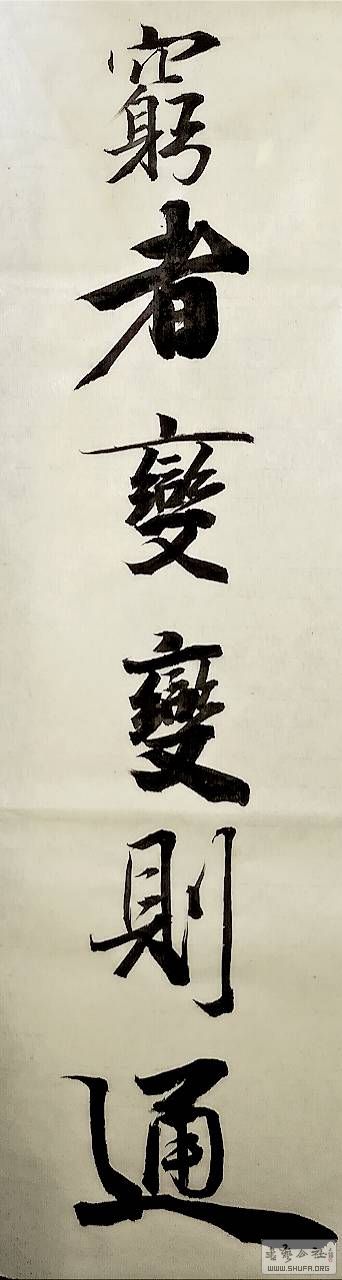 窮者變變則通
书法公社
WWW.SHUFA.ORG